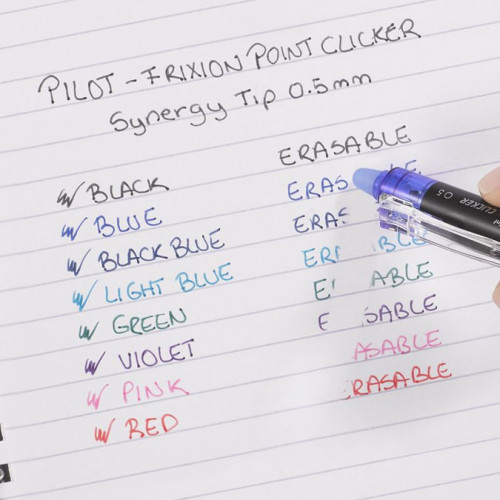 PILOT - FRIXION POINT CLICKER
Synergy Tip 0.5mm
ERASABLE
BLACK
ERAS LE
BLUE
ERAS
BLACK BLUE
ER BLE
LIGHT BLUE
E ABLE
GREEN
E SABLE
VIOLET
ASABLE
PINK
ERASABLE
RED
CLICKER 0.5